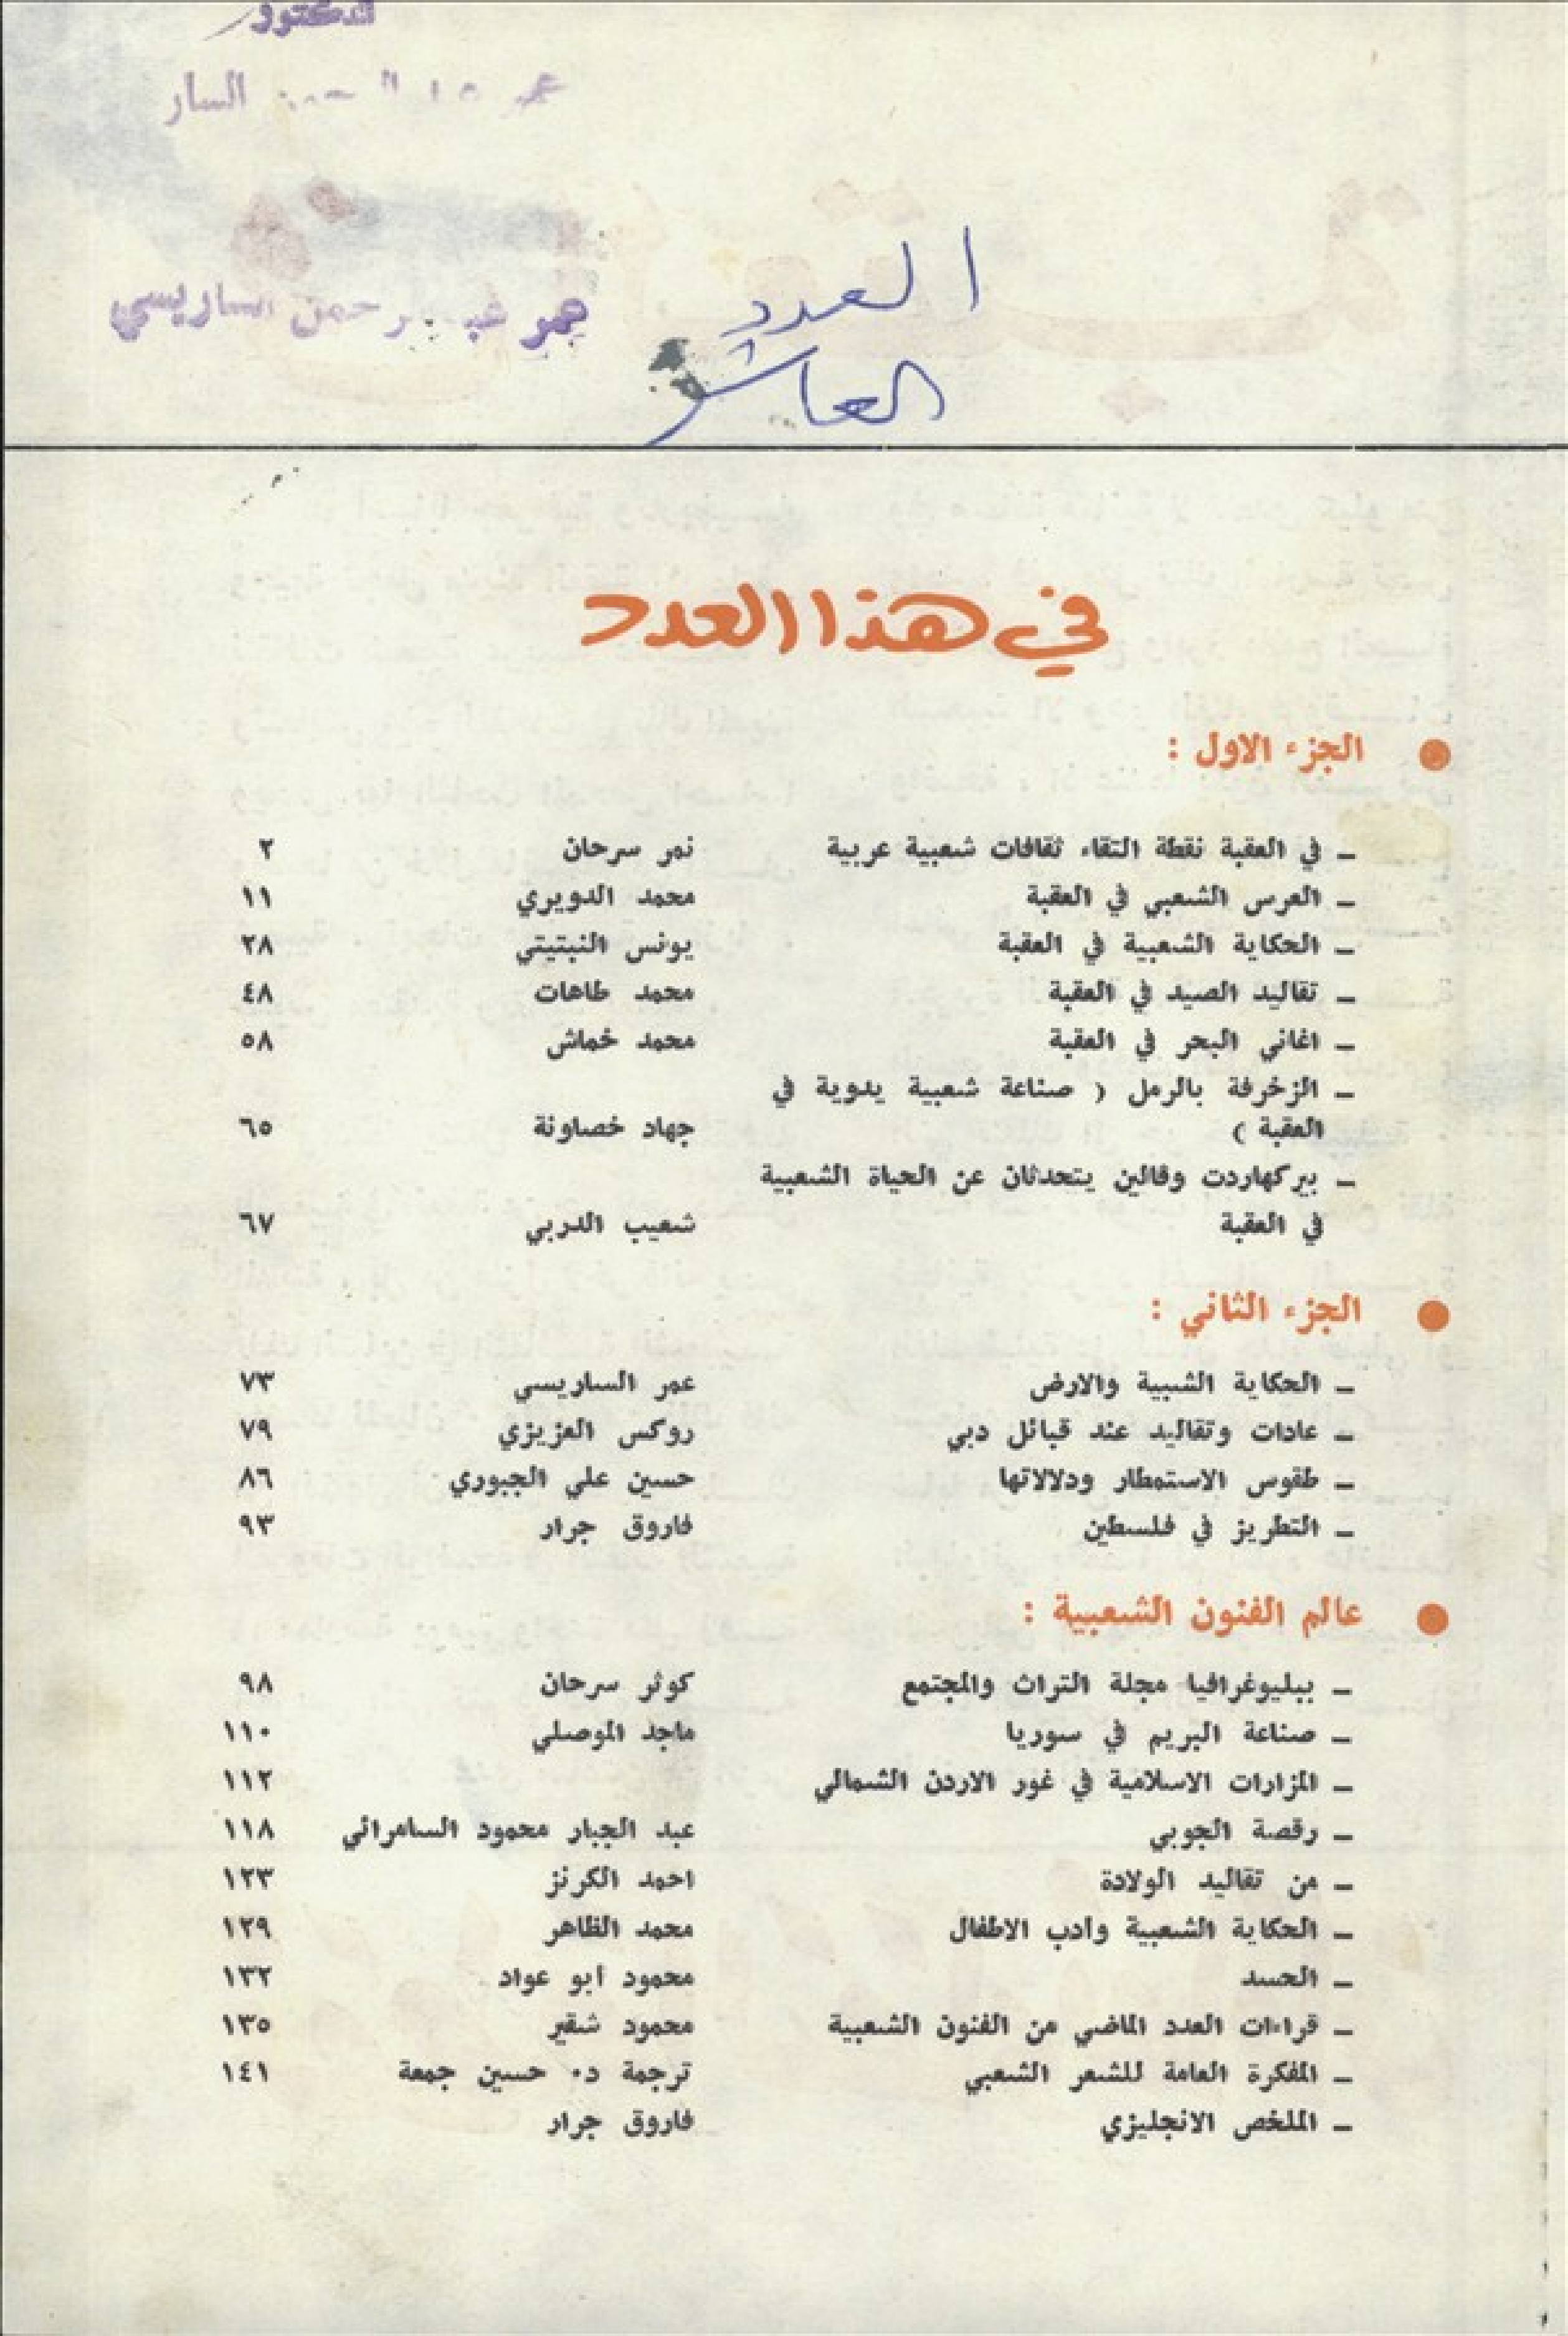 الدكتور
السار
عمر عبد الرحمن الساريسي
العدد
العاشر
في هذا العدد
● الجزء الاول :
ـ في العقبة نقطة التقاء ثقافات شعبية عربية نمر سرحان ٢
ـ العرس الشعبي في العقبة محمد الدويري ١١
ـ الحكاية الشعبية في العقبة يونس النبتيتي ٢٨
ـ تقاليد الصيد في العقبة محمد طاهات ٤٨
ـ اغاني البحر في العقبة محمد خماش ٥٨
ـ الزخرفة بالرمل ( صناعة شعبية يدوية في
العقبة ) جهاد خصاونة ٦٥
ـ بيركهاردت وفالين يتحدثان عن الحياة الشعبية
في العقبة شعيب الدربي ٦٧
● الجزء الثاني :
ـ الحكاية الشبية والارض عمر الساريسي ٧٣
ـ عادات وتقاليد عند قبائل دبي روكس العزيزي ٧٩
ـ طقوس الاستمطار ودلالاتها حسين علي الجبوري ٨٦
ـ التطريز في فلسطين فاروق جرار ٩٣
● عالم الفنون الشعبية :
ـ ببليوغرافيا مجلة التراث والمجتمع كوثر سرحان ٩٨
ـ صناعة البريم في سوريا ماجد الموصلي ١١٠
ـ المزارات الاسلامية في غور الاردن الشمالي ١١٢
ـ رقصة الجوبي عبد الجبار محمود السامرائي ١١٨
ـ من تقاليد الولادة احمد الكرنز ١٢٣
ـ الحكاية الشعبية وأدب الاطفال محمد الظاهر ١٢٩
ـ الحسد محمود أبو عواد ١٣٢
ـ قراءات العدد الماضي من الفنون الشعبية محمود شقير ١٣٥
ـ المفكرة العامة للشعر الشعبي ترجمة د. حسين جمعة ١٤١
ـ الملخص الانجليزي فاروق جرار